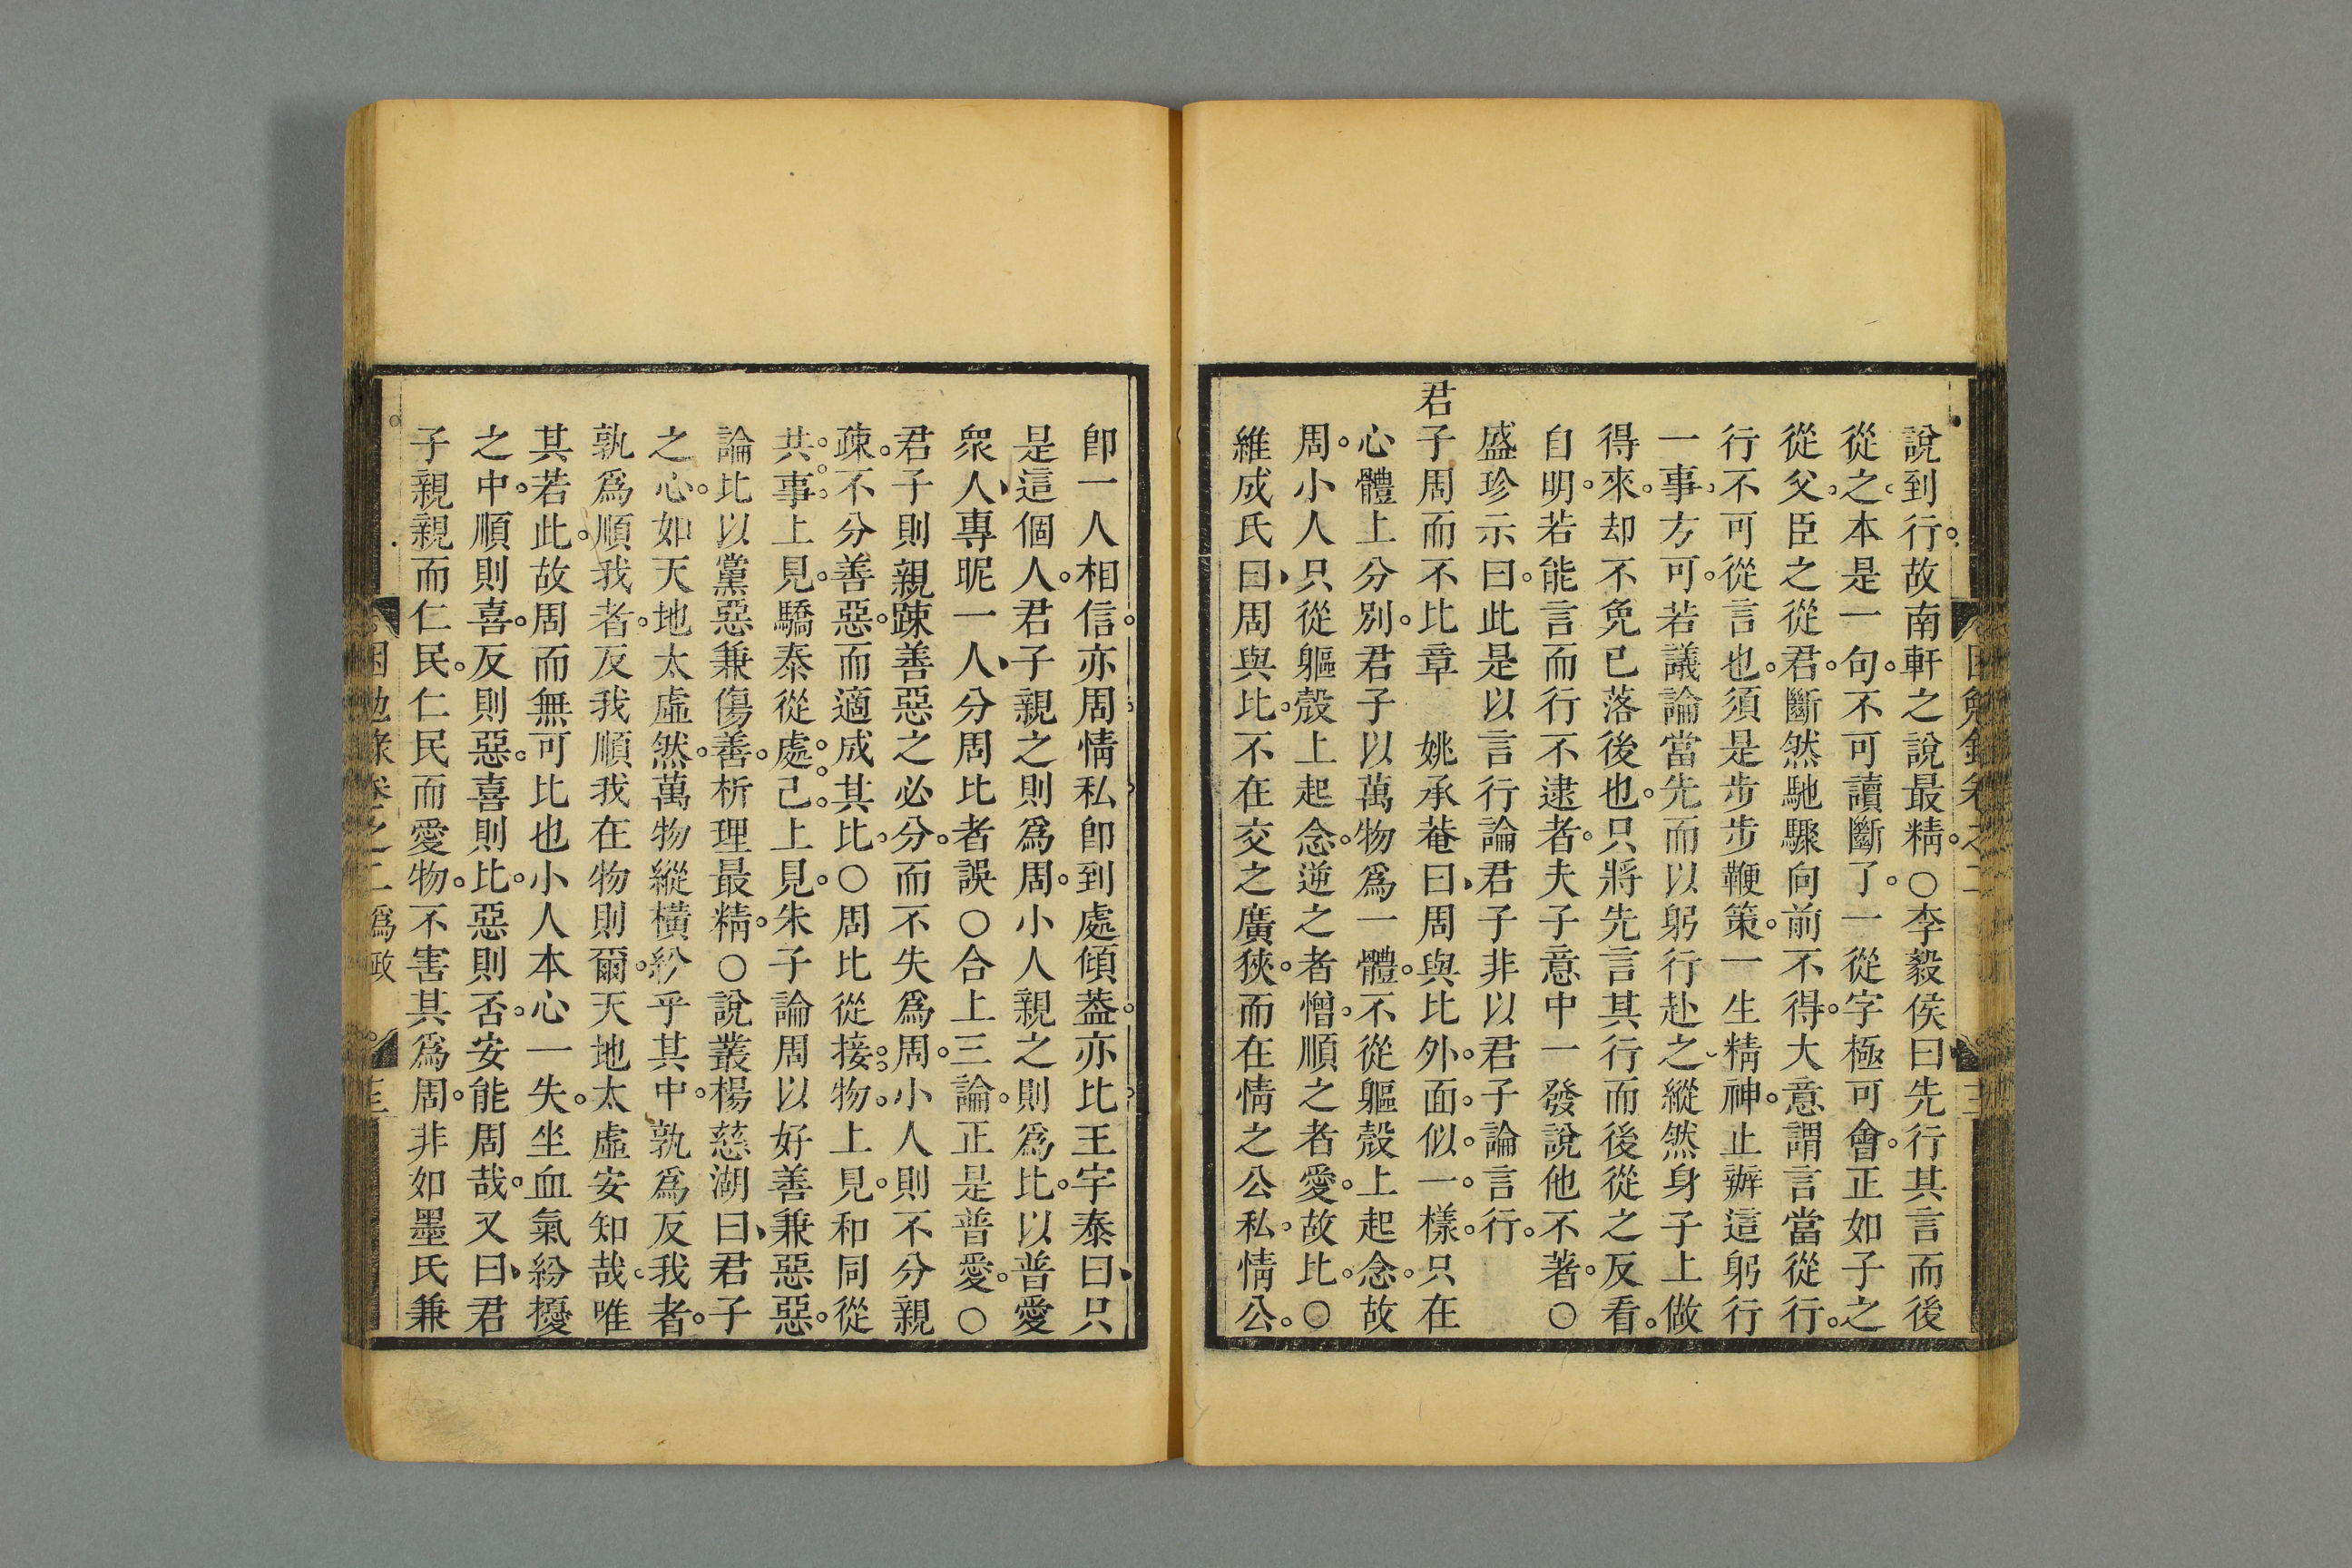 說到行。故南軒之說最精。○李毅侯曰先行其言而後
從之本是一句。不可讀斷了。一從字極可會。正如子之
從父。臣之從君。斷然馳驟向前不得。大意謂言當從行。
行不可從言也。須是步步鞭策。一生精神。止辦這躬行
一事。方可。若議論當先而以躬行赴之。縱然身子上做
得來。却不免已落後也。只將先言其行而後從之反看。
自明。若能言而行不逮者。夫子意中一發說他不著。○
盛珍示曰。此是以言行論君子非以君子論言行。
君子周而不比章 姚承菴曰、周與比外。面。似。一。樣。只在
心體上分別。君子以萬物爲一體。不從軀殼上起念。故
周。小人只從軀殼上起念。逆之者憎。順之者愛。故比。○
維成氏曰、周與比。不在交之廣狹。而在情之公私。情公。
卽一人相信。亦周。情私。卽到處傾葢。亦比。王宇泰曰、只
是這個人。君子親之則爲周。小人親之則爲比。以普愛
衆人、專昵一人、分周比者誤○合上三論。正是普愛。○
君子則親踈善惡之必分。而不失爲周。小人則不分親
疎。不分善惡。而適成其比。○周比從接。物。上見。和同從
共。事。上見。驕泰從處。己。上見。朱子論周以好善兼惡惡。
論比以黨惡兼傷善。析理最精。○說叢楊慈湖曰、君子
之心。如天地太虛然。萬物縱橫紛乎其中。孰爲反我者。
孰爲順我者。反我順我在物則爾。天地太虛安知哉。唯
其若此。故周而無可比也小人本心一失。坐血氣紛擾
之中。順則喜。反則惡。喜則比。惡則否。安能周哉。又曰、君
子親親而仁民。仁民而愛物。不害其爲周。非如墨氏兼
困勉錄卷之二 爲政